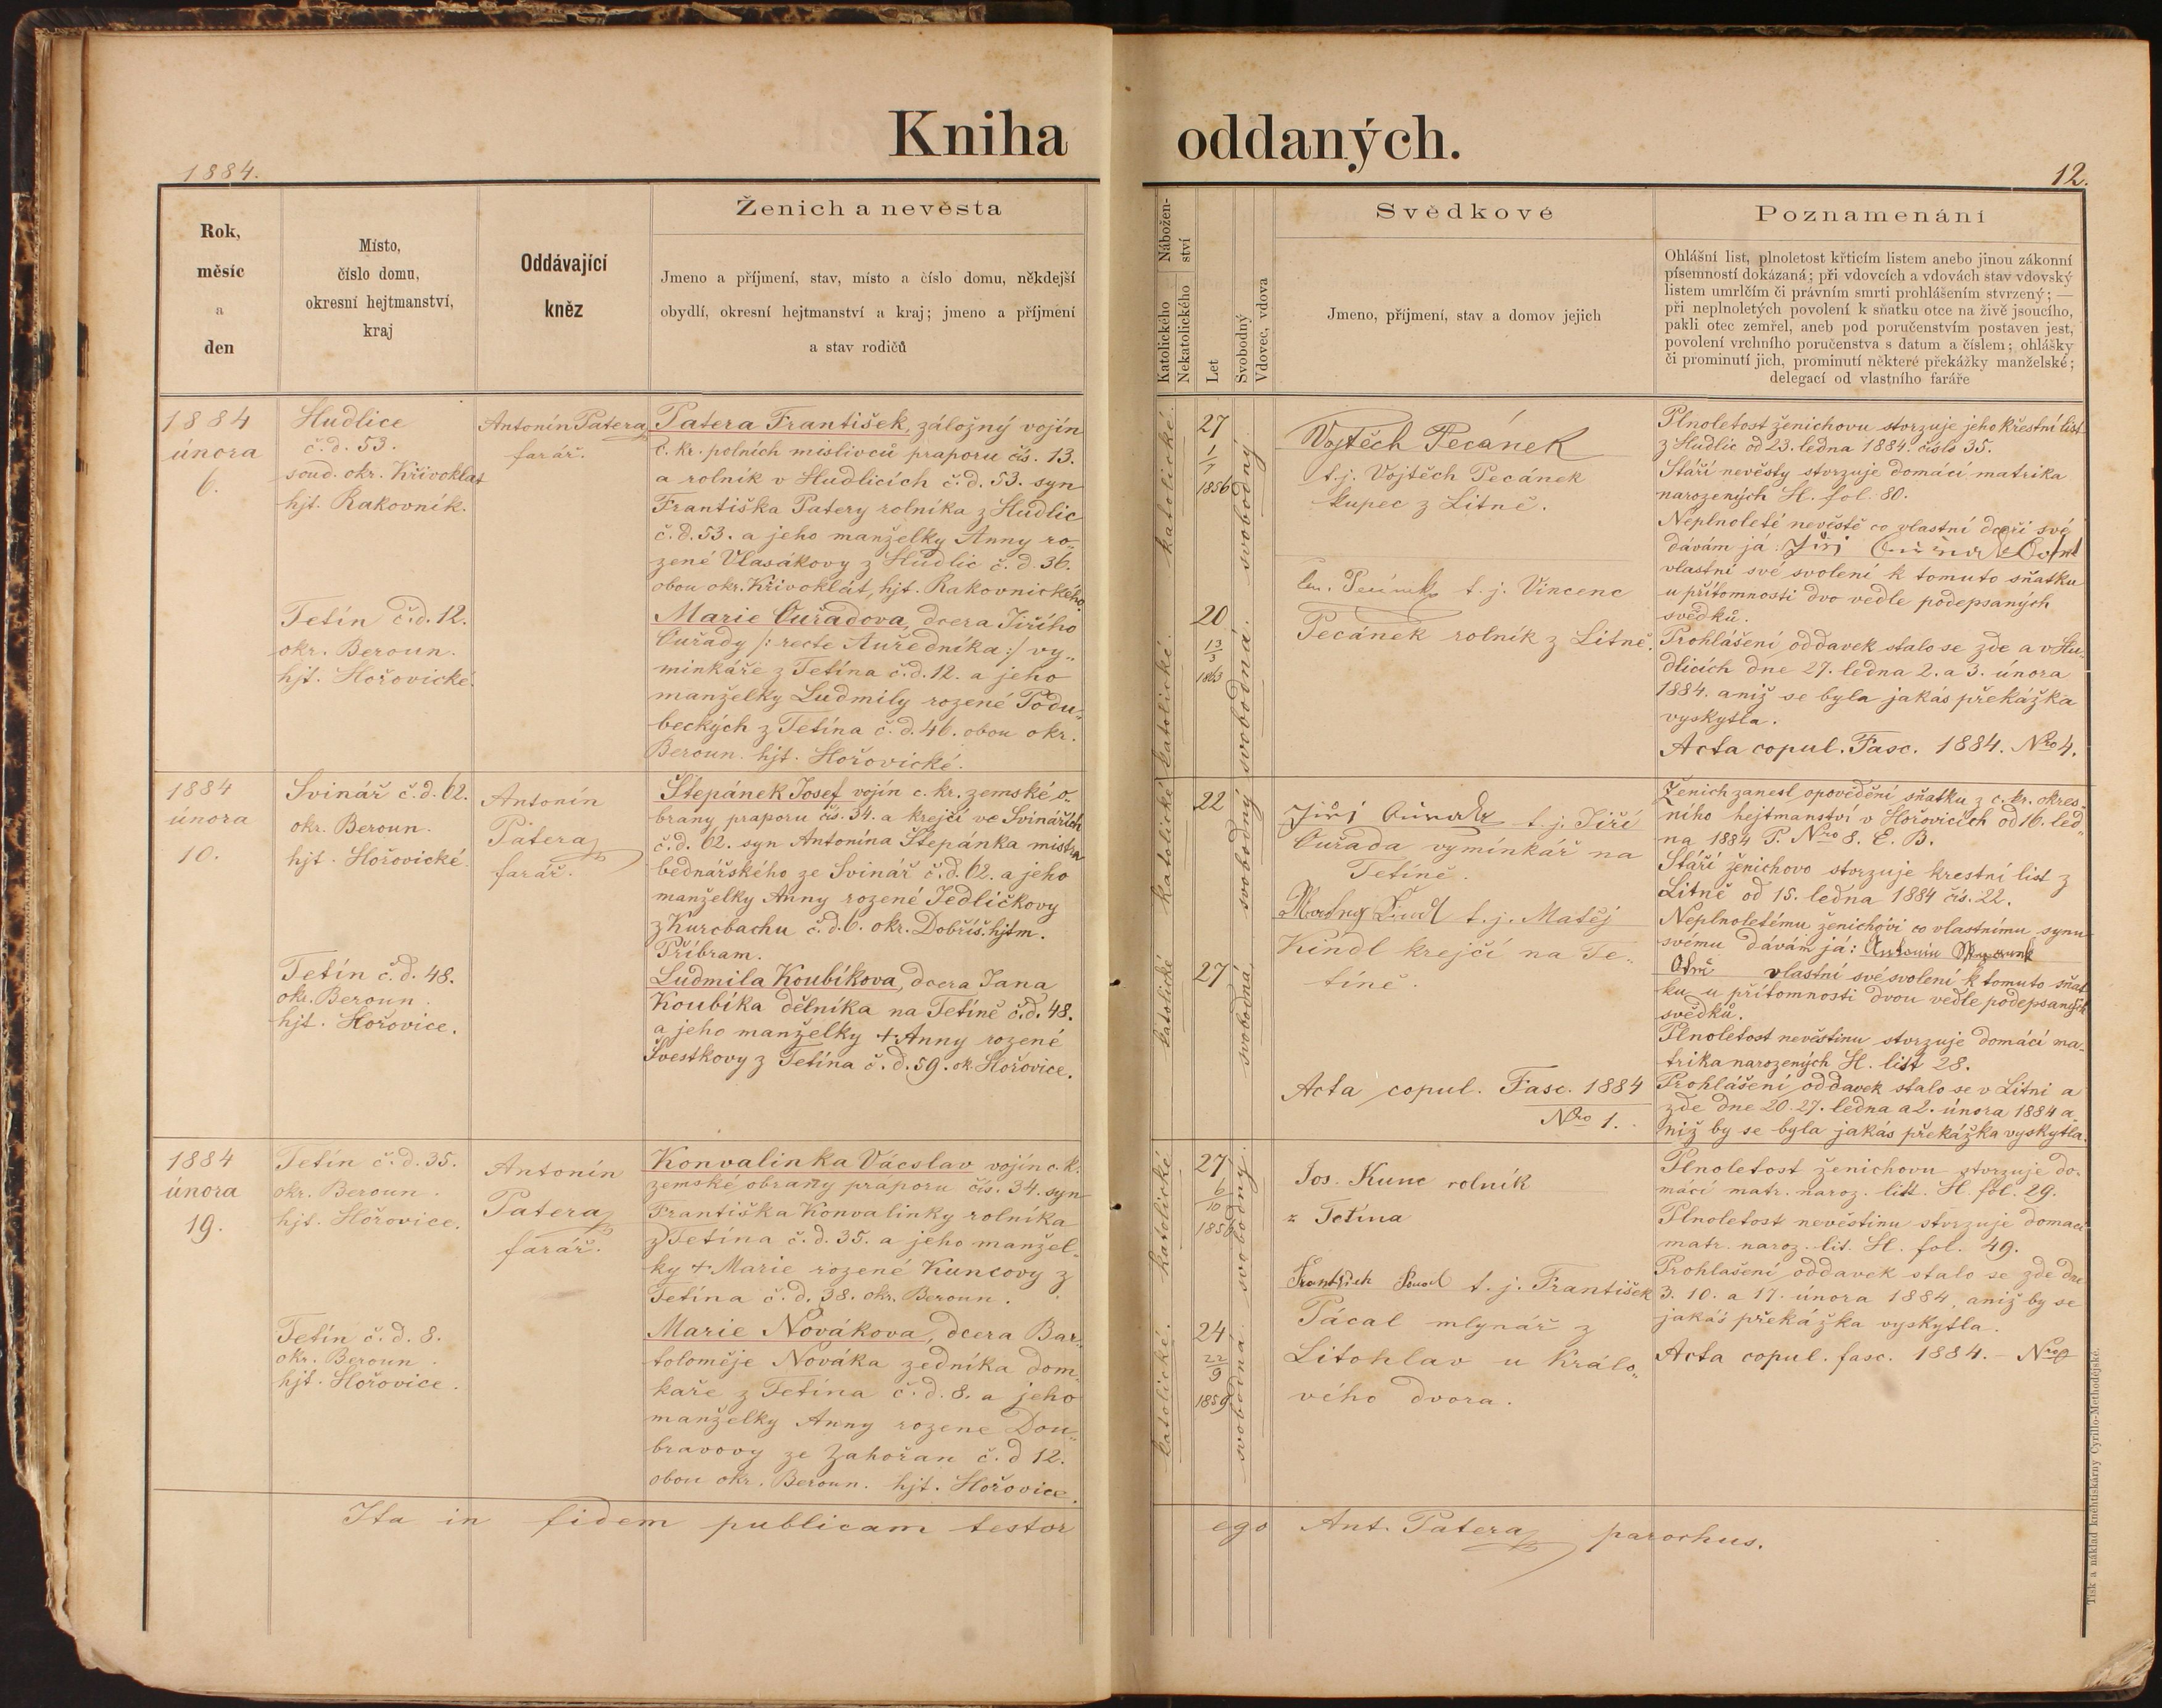 Kniha oddaných.
1884.
12.
Rok,
měsíc
a
den
Místo,
číslo domu,
okresní hejtmanství,
kraj
Oddávající
kněz
Ženich a nevěsta
Jmeno a příjmení, stav, místo a číslo domu, někdejší
obydlí, okresní hejtmanství a kraj; jmeno a příjmení
a stav rodičů
Nábožen-
ství
Katolického
Nekatolického
Let
Svobodný
Vdovec, vdova
Svědkové
Jmeno, příjmení, stav a domov jejich
Poznamenání
Ohlášní list, plnoletost křticím listem anebo jinou zákonní
písemností dokázaná; při vdovcích a vdovách stav vdovský
listem umrlčím či právním smrti prohlášením stvrzený; —
při neplnoletých povolení k sňatku otce na živě jsoucího,
pakli otec zemřel, aneb pod poručenstvím postaven jest,
povolení vrchního poručenstva s datum a číslem; ohlášky
či prominutí jich, prominutí některé překážky manželské;
delegací od vlastního faráře
1884
února
6.
Hudlice
č. d. 53.
soud. okr. Křivoklat
hjt. Rakovník.
Tetín č. d. 12.
okr. Beroun.
hjt. Hořovické.
Antonín Patera
farář.
Patera František, záložný vojín
c. kr. polních mislivců praporu čís. 13.
a rolník v Hudlicích č. d. 53. syn
Františka Patery rolníka z Hudlic
č. d. 53. a jeho manželky Anny ro„
zené Vlasákovy z Hudlic č. d. 36.
obou okr. Křivoklát, hjt. Rakovnického.
Marie Cuřadova, dcera Jiřího
Cuřady /: recte Auředníka :/ vy„
minkáře z Tetína č. d. 12. a jeho
manželky Ludmily rozené Podu„
beckých z Tetína č. d. 46. obou okr.
Beroun. hjt. Hořovické.
katolické.
katolické
27
1/1
1856
20
13/3
1863
svobodný
svobodná.
Vojtěch Pecánek
t. j. Vojtěch Pecánek
kupec z Litně.
t. j. Vincenc
Pecánek rolník z Litně.
Plnoletost ženichovu stvrzuje jeho křestní list
z Hudlic od 23. ledna 1884. číslo 35.
Stáří nevěsty stvrzuje domácí matrika
narozených H. fol. 80.
Neplnoleté nevěstě co vlastní dceři své
dávám já: Jiří
vlastní své svolení k tomuto sňatku
u přítomnosti dvo vedle podepsaných
svědků.
Prohlášení oddavek stalo se zde a v Hu„
dlicích dne 27. ledna 2. a 3. února
1884. aniž se byla jakás překážka
vyskytla.
Acta copul. Fasc. 1884. Nro 4.
1884
února
10.
Svinář č. d. 62.
okr. Beroun.
hjt. Hořovické.
Tetín č. d. 48.
okr. Beroun.
hjt. Hořovice.
Antonín
Patera
farář.
Štepánek Josef vojín c. kr. zemské o„
brany praporu čís. 34. a krejčí ve Svinařích
č. d. 62. syn Antonína Štepánka mistra
bednářského ze Svinař č. d. 62. a jeho
manželky Anny rozené Jedličkovy
z Kurcbachu č. d. 6. okr. Dobříš. hjtm.
Příbram.
Ludmila Koubíkova, dcera Jana
Koubíka dělníka na Tetíně č. d. 48.
a jeho manželky + Anny rozené
Švestkovy z Tetína č. d. 59. ok. Hořovice.
katolické
katolické
22
27
svobodný
svobodná
Jiří t. j. Jiří
Cuřada vymínkář na
Tetíně.
t. j. Matěj
Kindl krejčí na Te„
tíně.
Acta copul. Fasc. 1884
Nro 1.
Ženich zanesl opovědění sňatku z c. kr. okres-
ního hejtmanství v Hořovicích od 16. led„
na 1884 P. Nro 8. E. B.
Stáří ženichovo stvrzuje krestní list z
Litně od 15. ledna 1884 čís. 22.
Neplnoletému ženichovi co vlastnímu synu
svému dávám já: Antonín
vlastní své svolení k tomuto sňat
ku u přítomnosti dvou vedle podepsaných
svědků.
Plnoletost nevěstinu stvrzuje domácí ma-
trika narozených H. list 28.
Prohlášení oddavek stalo se v Litni a
zde dne 20. 27. ledna a 2. února 1884 a-
niž by se byla jakás překážka vyskytla.
1884
února
19.
Tetín č. d. 35.
okr. Beroun.
hjt. Hořovice.
Tetín č. d. 8.
okr. Beroun.
hjt. Hořovice.
Antonín
Patera
farář.
Konvalinka Vácslav vojín c. k.
zemské obrany praporu čís. 34. syn
Františka Konvalinky rolníka
z Tetína č. d. 35. a jeho manžel-
ky + Marie rozené Kuncovy z
Tetína č. d. 38. okr. Beroun.
Marie Novákova, dcera Bar„
toloměje Nováka zedníka dom„
kaře z Tetína č. d. 8. a jeho
manželky Anny rozene Dou„
bravovy ze Zahořan č. d 12.
obou okr. Beroun. hjt. Hořovice.
katolické
katolické.
27
6/10
24
22/9
1859
svobodný.
svobodná.
Jos. Kunc rolník
z Tetína
t. j. František
Pácal mlynář z
Litohlav u Králo„
vého dvora.
Plnoletost ženichovu stvrzuje do-
mácí matr. naroz. litt. H. fol. 29.
Plnoletost nevěstinu stvrzuje domácí
matr. naroz. lit. H. fol. 49.
Prohlašení oddavek stalo se zde dne
3. 10. a 17. února 1884, aniž by se
jakás překážka vyskytla.
Acta copul. fasc. 1884. – Nro
Ita in fidem publicam testor ego Ant. Patera parochus.
Tisk a náklad knihtiskárny Cyrillo-Methodějské.